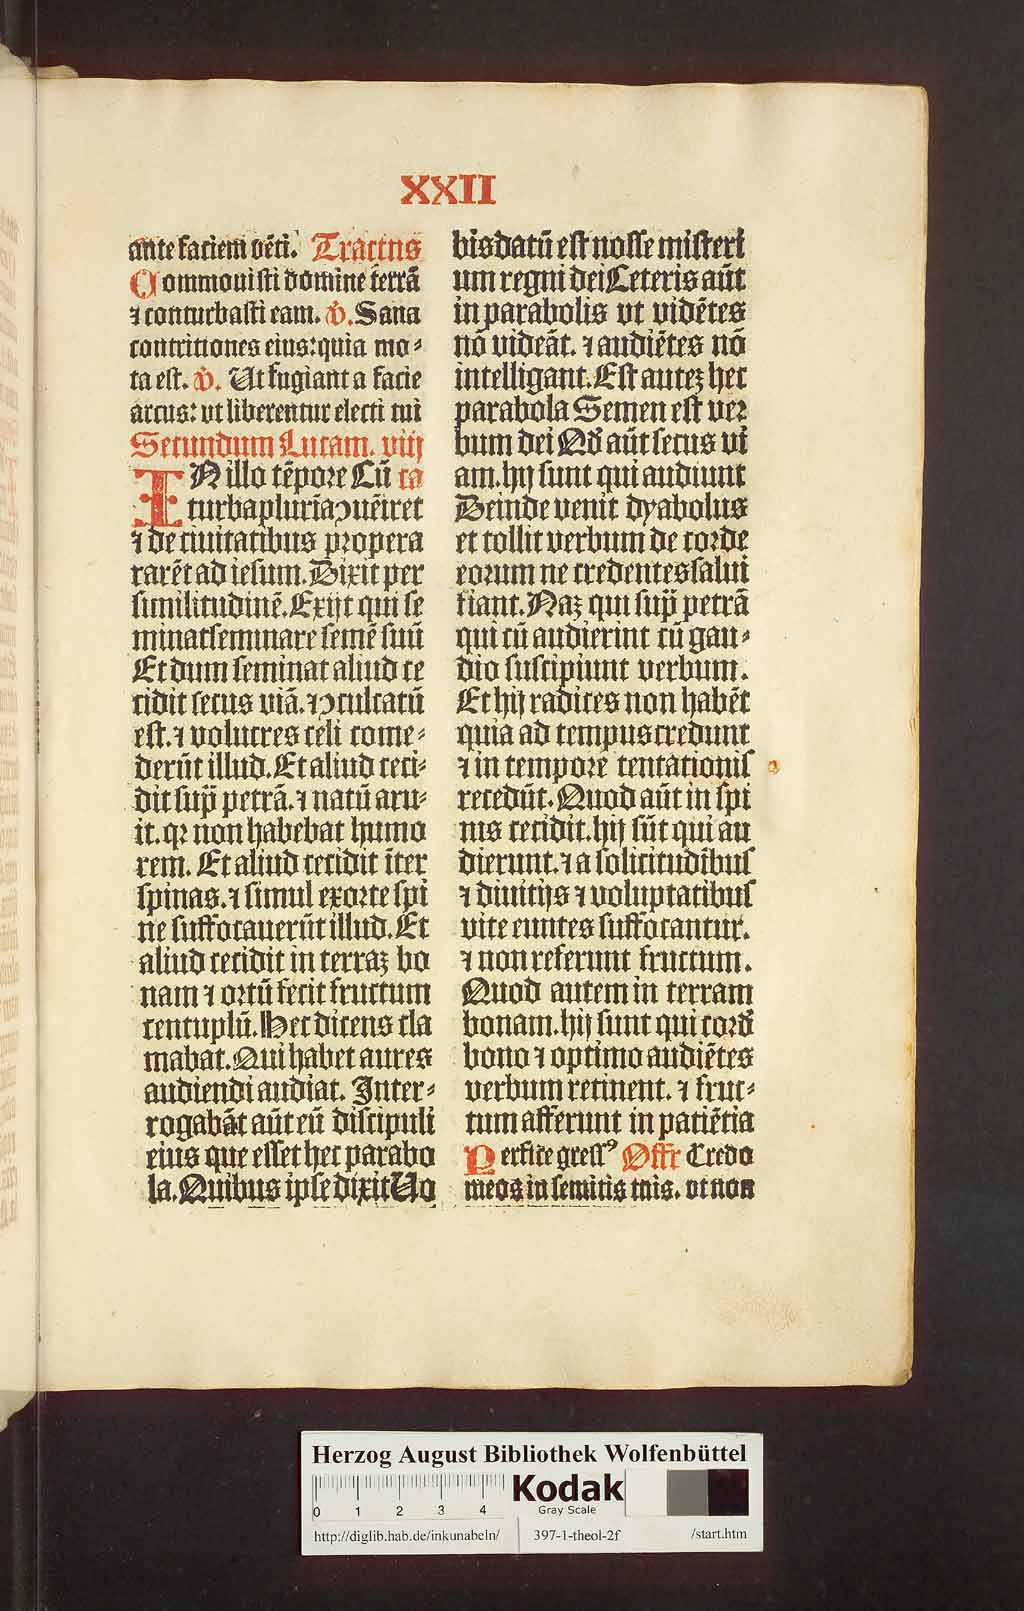 XXII
ante faciem vēti. Tractus
Commouisti domine terrā
⁊ conturbasti eam. v̄. Sana
contritiones eius: quia mo⸗
ta est. v̄. Ut fugiant a facie
arcus: vt liberentur electi tui
Secundum Lucam. viij
IN illo tēpore Cū ca
turba plurīa ꝯuēiret
⁊ de ciuitatibus propera
rarēt ad iesum. Dixit per
similitudinē. Exijt qui se
minat seminare semē suū
Et dum seminat aliud ce
cidit secus viā. ⁊ ꝯculcatū
est. ⁊ volucres celi come⸗
derūt illud. Et aliud ceci⸗
dit sup̄ petrā. ⁊ natū aru⸗
it. qꝛ non habebat humo
rem. Et aliud cecidit īter
spinas. ⁊ simul exorte spi
ne suffocauerūt illud. Et
aliud cecidit in terraꝫ bo
nam ⁊ ortū fecit fructum
centuplū. Hec dicens cla
mabat. Qui habet aures
audiendi audiat. Inter⸗
rogabāt aūt eū discipuli
eius que esset hec parabo
la. Quibus ipse dixit Uo
bis datū est nosse misteri
um regni dei Ceteris aūt
in parabolis vt vidētes
nō videāt. ⁊ audiētes nō
intelligant. Est auteꝫ hec
parabola Semen est ver
bum dei Qd̄ aūt secus vi
am. hij sunt qui audiunt
Deinde venit dyabolus
et tollit verbum de corde
eorum ne credentes salui
fiant. Naꝫ qui sup̄ petrā
qui cū audierint cū gau⸗
dio suscipiunt verbum.
Et hij radices non habēt
quia ad tempus credunt
⁊ in tempore tentationis
recedūt. Quod aūt in spi
nis cecidit. hij sūt qui au
dierunt. ⁊ a solicitudībus
⁊ diuitijs ⁊ voluptatibus
vite euntes suffocantur.
⁊ non referunt fructum.
Quod autem in terram
bonam. hij sunt qui cord̄
bono ⁊ optimo audiētes
verbum retinent. ⁊ fruc⸗
tum afferunt in patiētia
Perfice gressꝰ Offr Credo
meos in semitis tuis. vt non
Herzog August Bibliothek Wolfenbüttel
0 1 2 3 4
Kodak
Gray Scale
http://diglib.hab.de/inkunabeln/ 397-1-theol-2f /start.htm